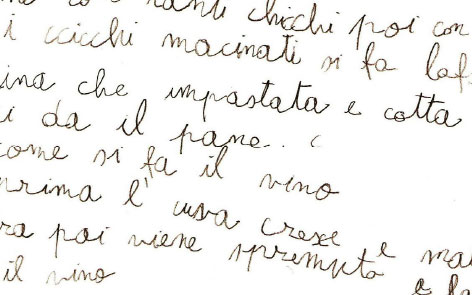 chicchi poi con
i ccicchi macinati si fa laf
ina che impastata e cotta
i da il pane..
come si fa il vino
prima l'uava crexe e ma
ra poi viene spremuta e
il vino